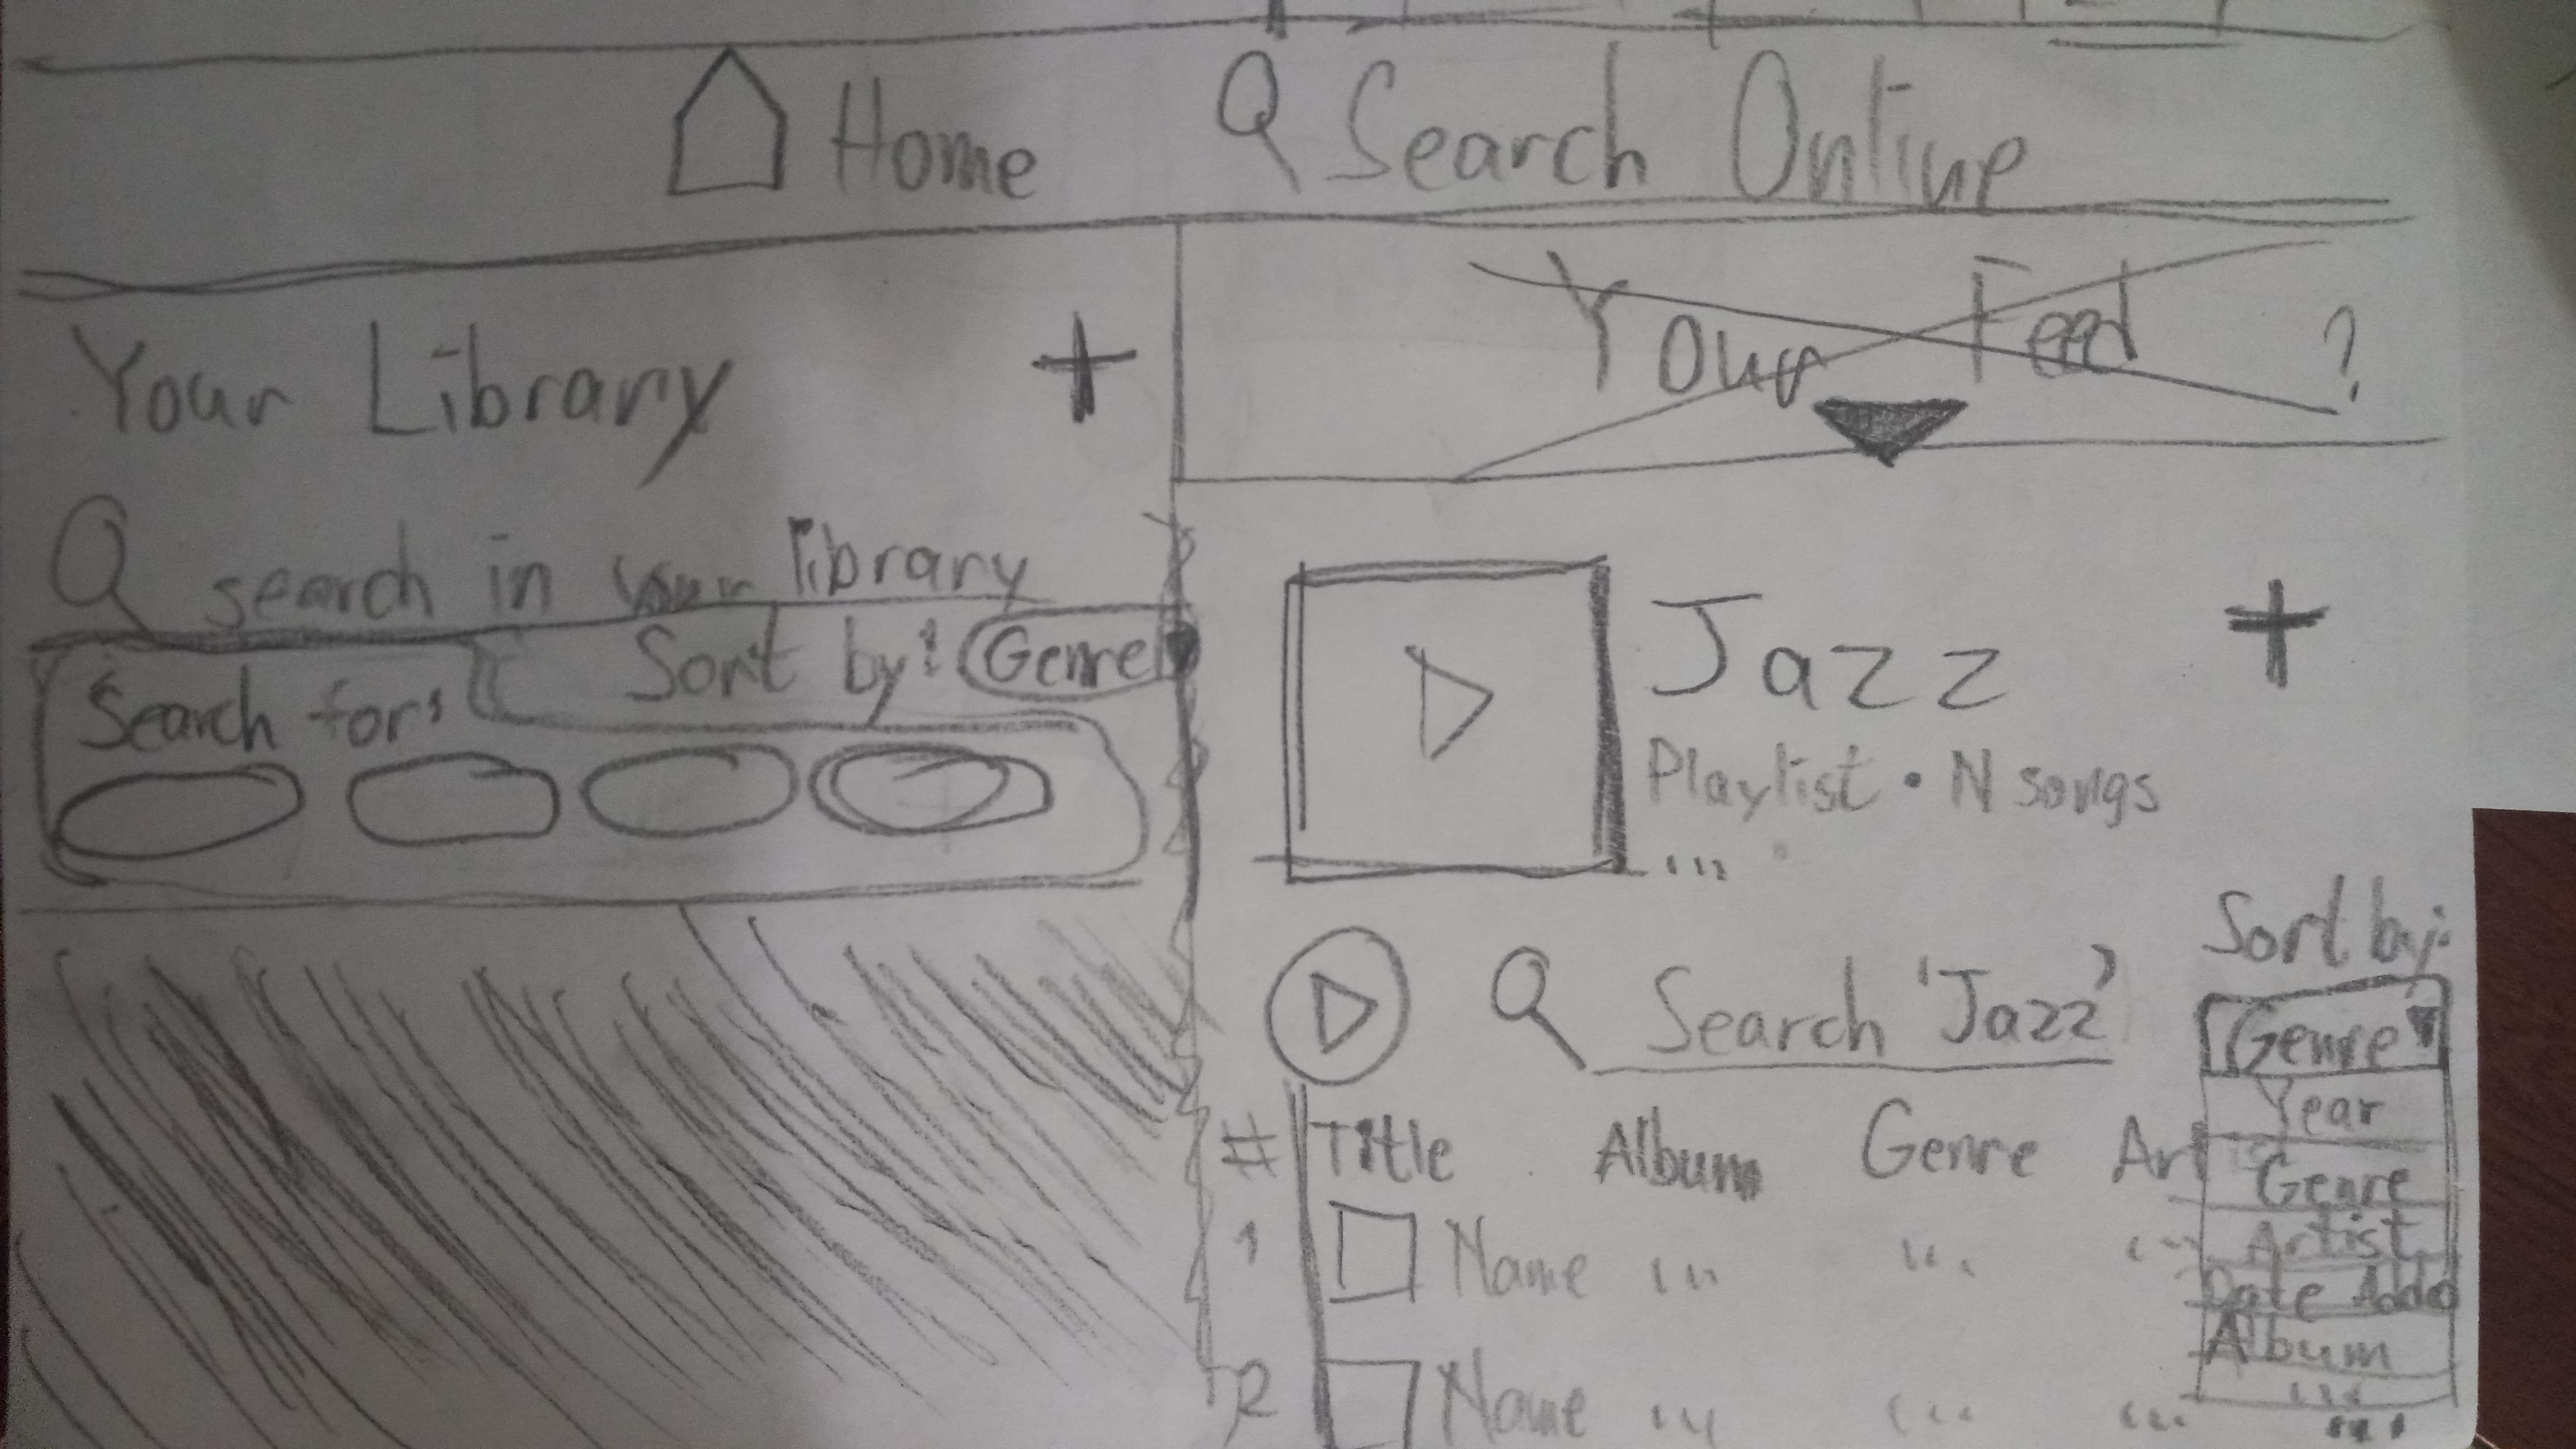 Home
Search Online
Your Library +
Your Feed ?
search in your library
Sort by: Genre
Search for:
Jazz +
Playlist • N songs
...
Search 'Jazz'
Sort by:
Genre
Year
Genre
Artist
Date Added
Album
...
# Title Album Genre Art
1 Name ... ... ...
2 Name ... ... ...
...